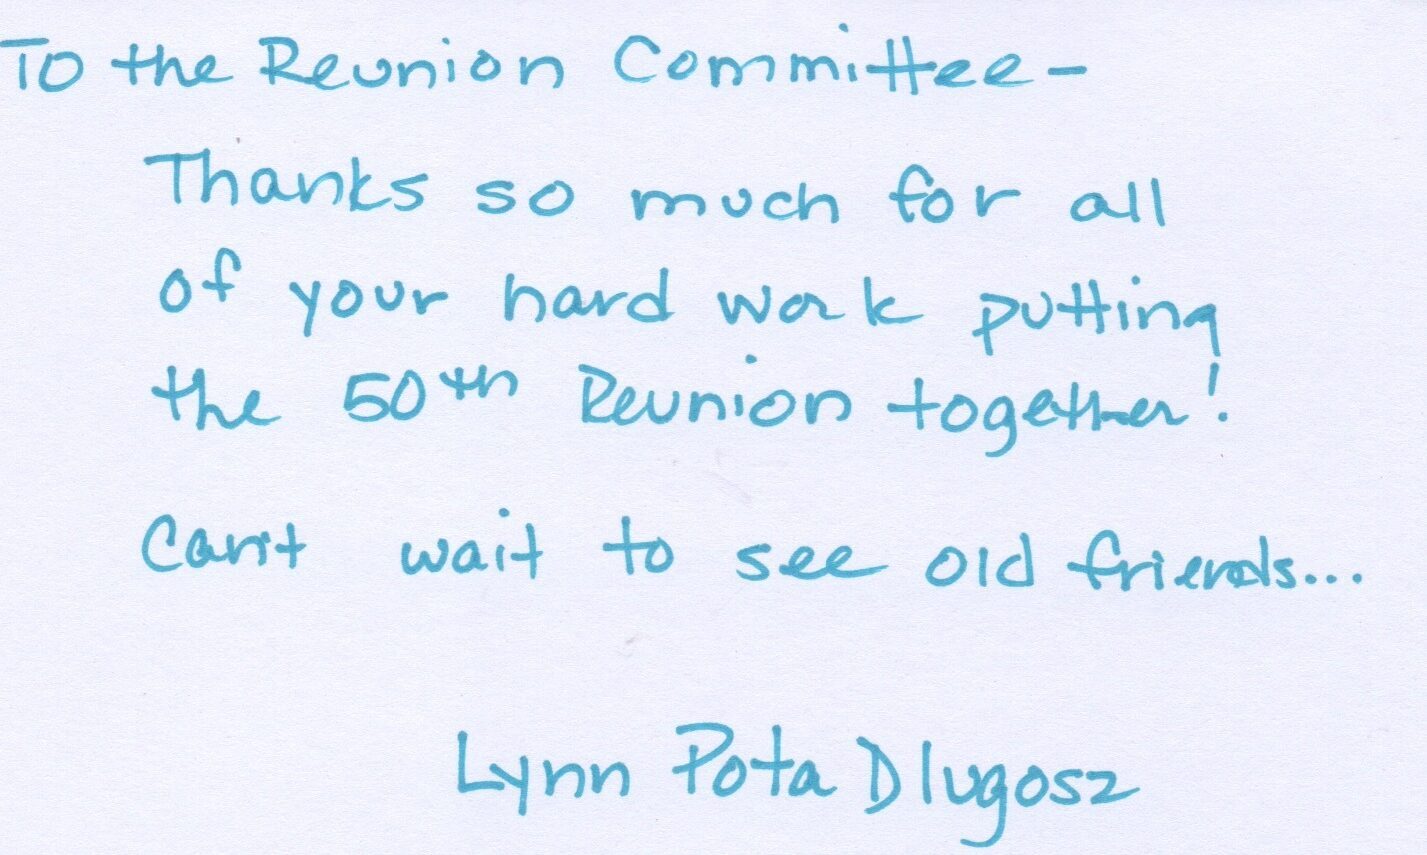 To the Reunion Committee-
Thanks so much for all
of your hard work putting
the 50th Reunion together!
Can't wait to see old friends...
Lynn Pota Dlugosz